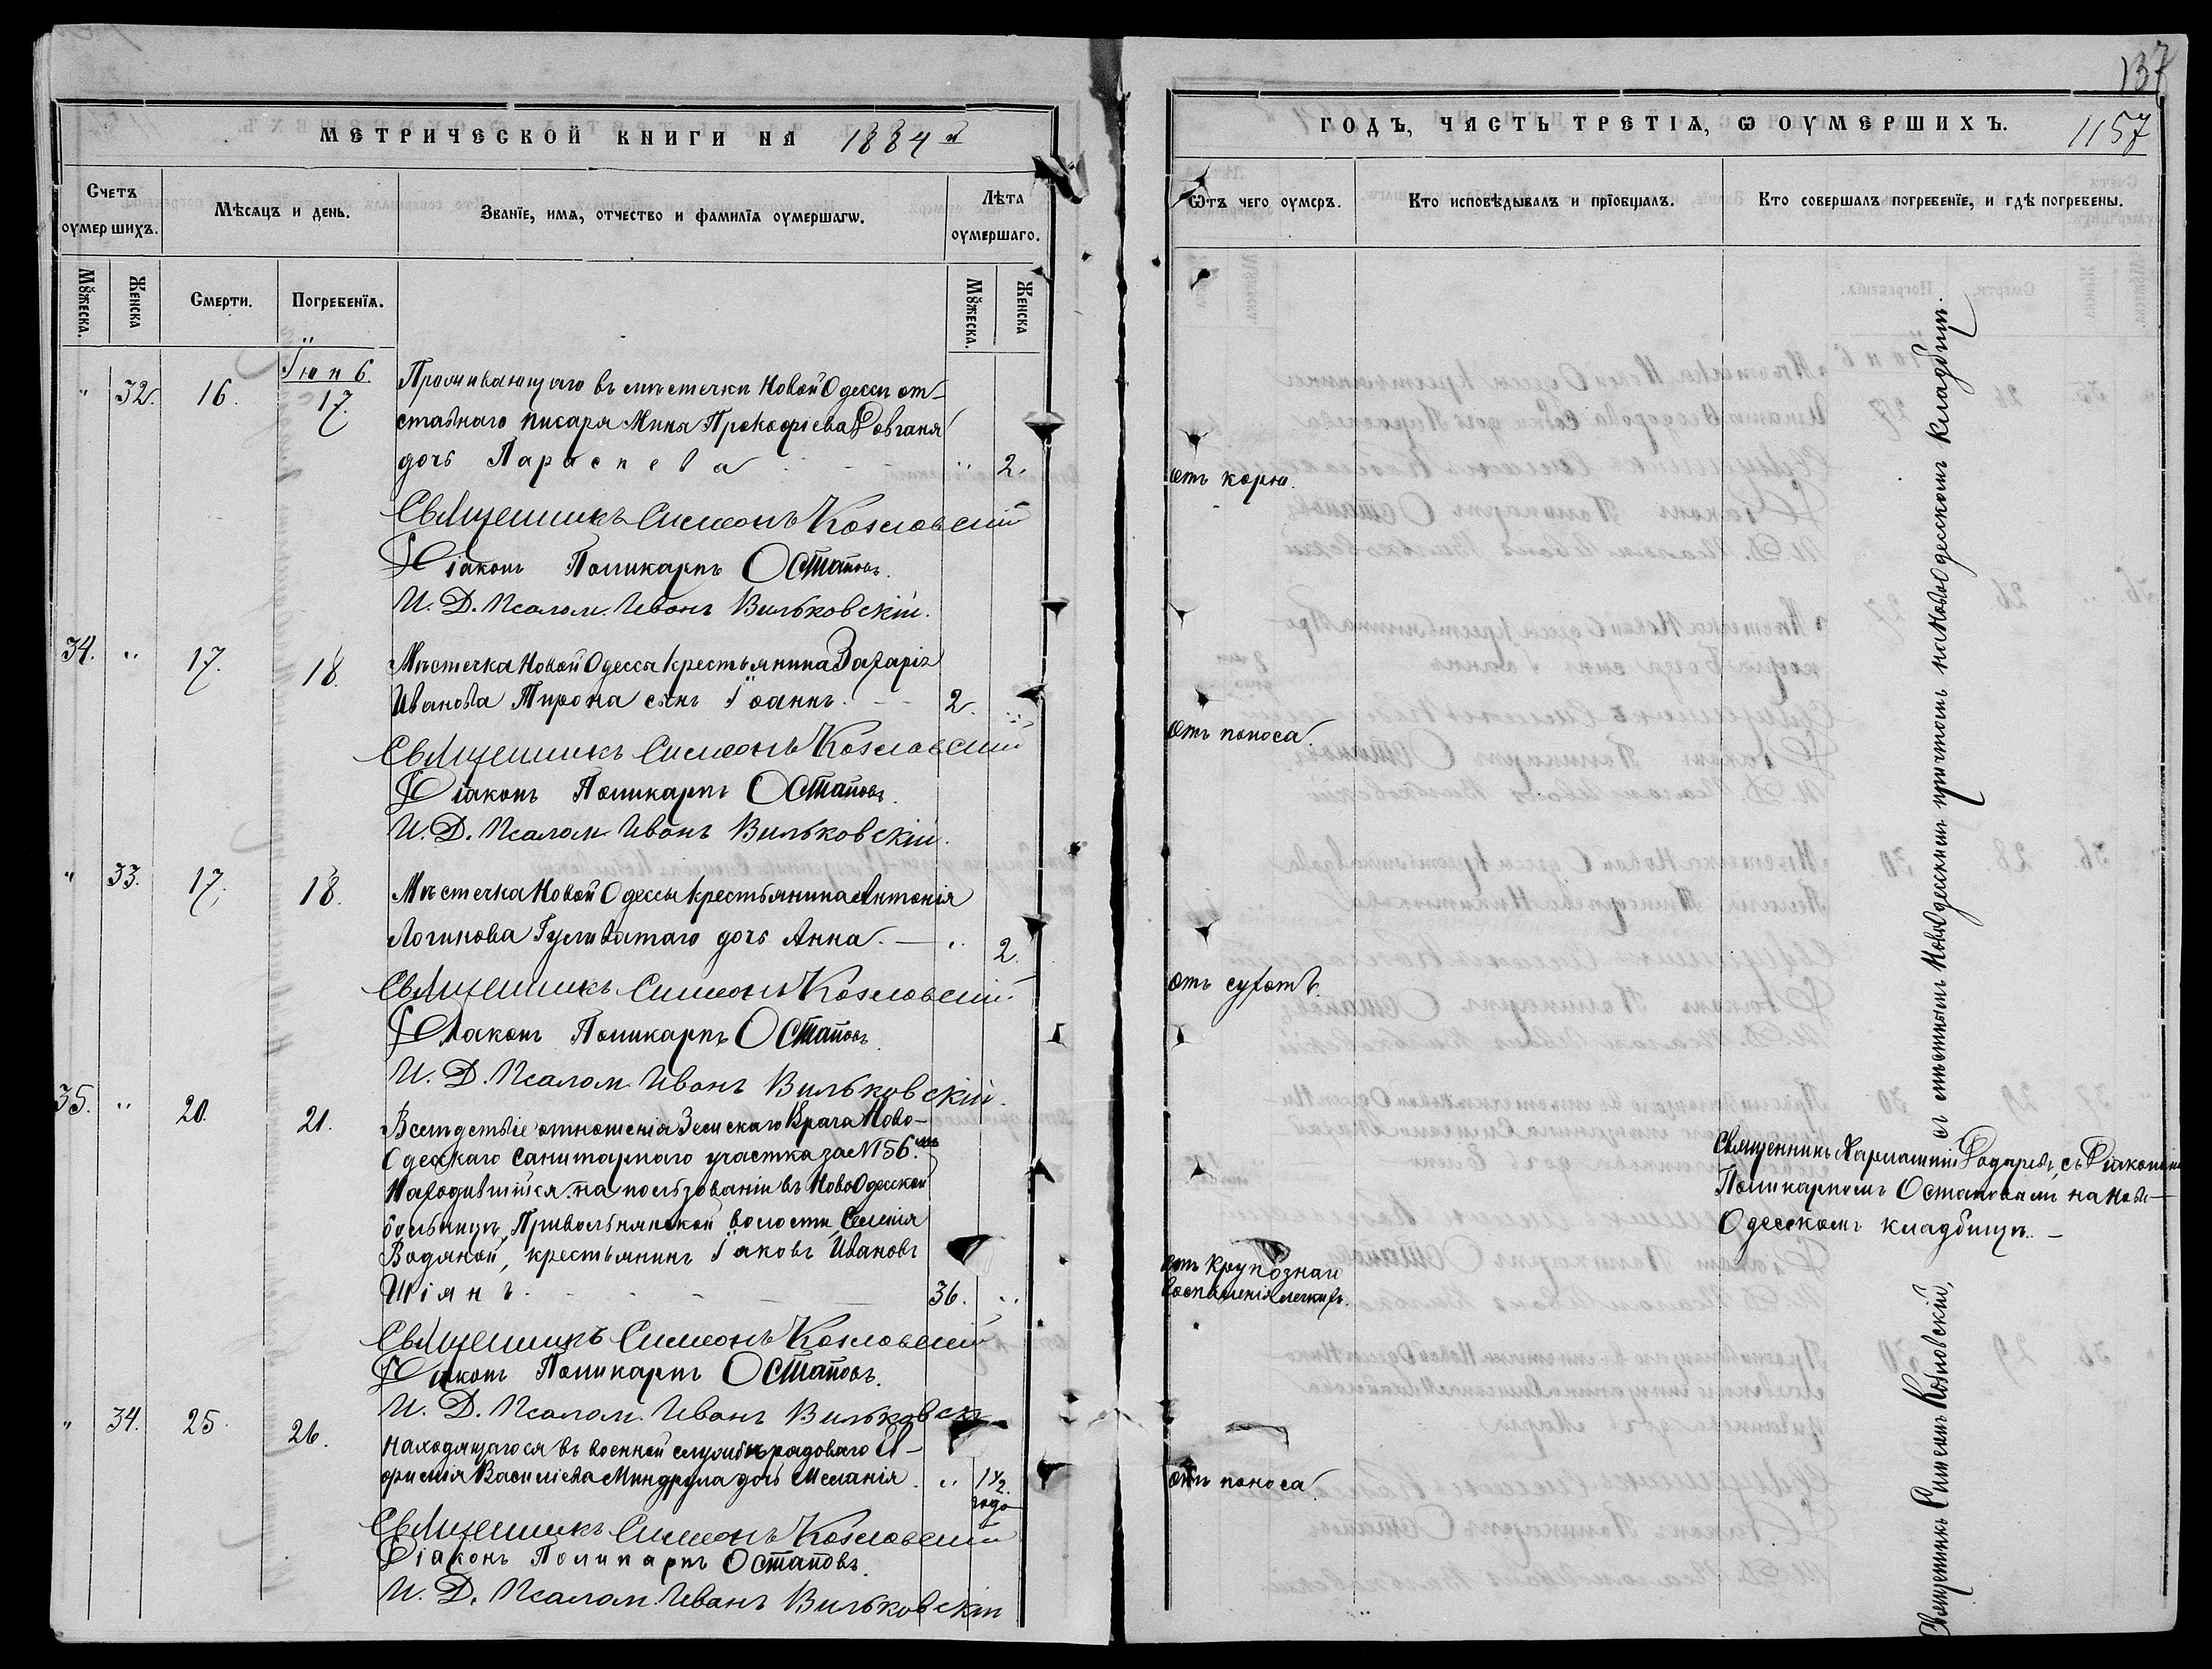 137
МЕТРИЧЕСКОЙ КНИГИ НА 1884 й
Счетъ оумершихъ.
Мѣсяцъ и день.
Званїе, имя, отчество и фамилїя оумершагѡ.
Лѣта оумершаго.
Мꙋжеска.
Женска
Смерти.
Погребенїя.
Мꙋжеска.
Женска
Іюнь.
" 32. 16. 17. Проживающаго въ мѣстечкѣ Новой Одессѣ от-
ставнаго писаря Мины Прокофіева Довганя
дочь Параскева " 2.
Священникъ Симеонъ Козловскій
Діаконъ Поликарпъ Остаповъ.
И. Д. Псалом. Иванъ Вильковскій.
34. " 17. 18. Мѣстечка Новой Одессы крестьянина Захарія
Иванова Мирона сынъ Іоаннъ. 2. "
Священникъ Симеонъ Козловскій
Діаконъ Поликарпъ Остаповъ.
И. Д. Псалом Иванъ Вильковскій.
" 33. 17. 18. Мѣстечка Новой Одессы крестьянина Антонія
Логинова Гуливатаго дочь Анна. " 2.
Священникъ Симеонъ Козловскій
Діаконъ Поликарпъ Остаповъ.
И. Д. Псалом. Иванъ Вильковскій.
35. " 20. 21. Вслѣдствіе отношенія Земскаго Врача Ново-
Одесскаго санитарнаго участка за № 156.
Находившійся на пользованіи въ НовоОдесской
больницѣ, Привольнянской волости, Селенія
Водяной, крестьянинъ Іаковъ Ивановъ
Шіянъ. 36. "
Священникъ Симеонъ Козловскій
Діаконъ Поликарпъ Остаповъ.
И. Д. Псалом. Иванъ Вильковскі
" 34. 25. 26. Находящагося въ военной службѣ рядоваго Ев-
фимія Василіева Миндрула дочь Меланія. " 1 1/2. года
Священникъ Симеонъ Козловскій
Діаконъ Поликарпъ Остаповъ.
И. Д. Псалом. Иванъ Вильковскій
ГОДЪ, ЧАСТЬ ТРЕТІЯ, Ѡ ОУМЕРШИХЪ. 1157
Ѿтъ чего оумеръ.
Кто исповѣдывалъ и прїобщалъ.
Кто совершалъ погребенїе, и гдѣ погребены.
отъ кори.
отъ поноса.
отъ сухотъ.
отъ крупознаго
воспаленія легкихъ.
отъ поноса.
Священникъ Симеонъ Козловскій, съ мѣстнымъ Новоодесскимъ причтомъ на НовоОдесскомъ кладбищѣ.
Священникъ Харлампій с Діакономъ
Поликарпомъ Остаповымъ на Ново-
Одесскомъ кладбищѣ.